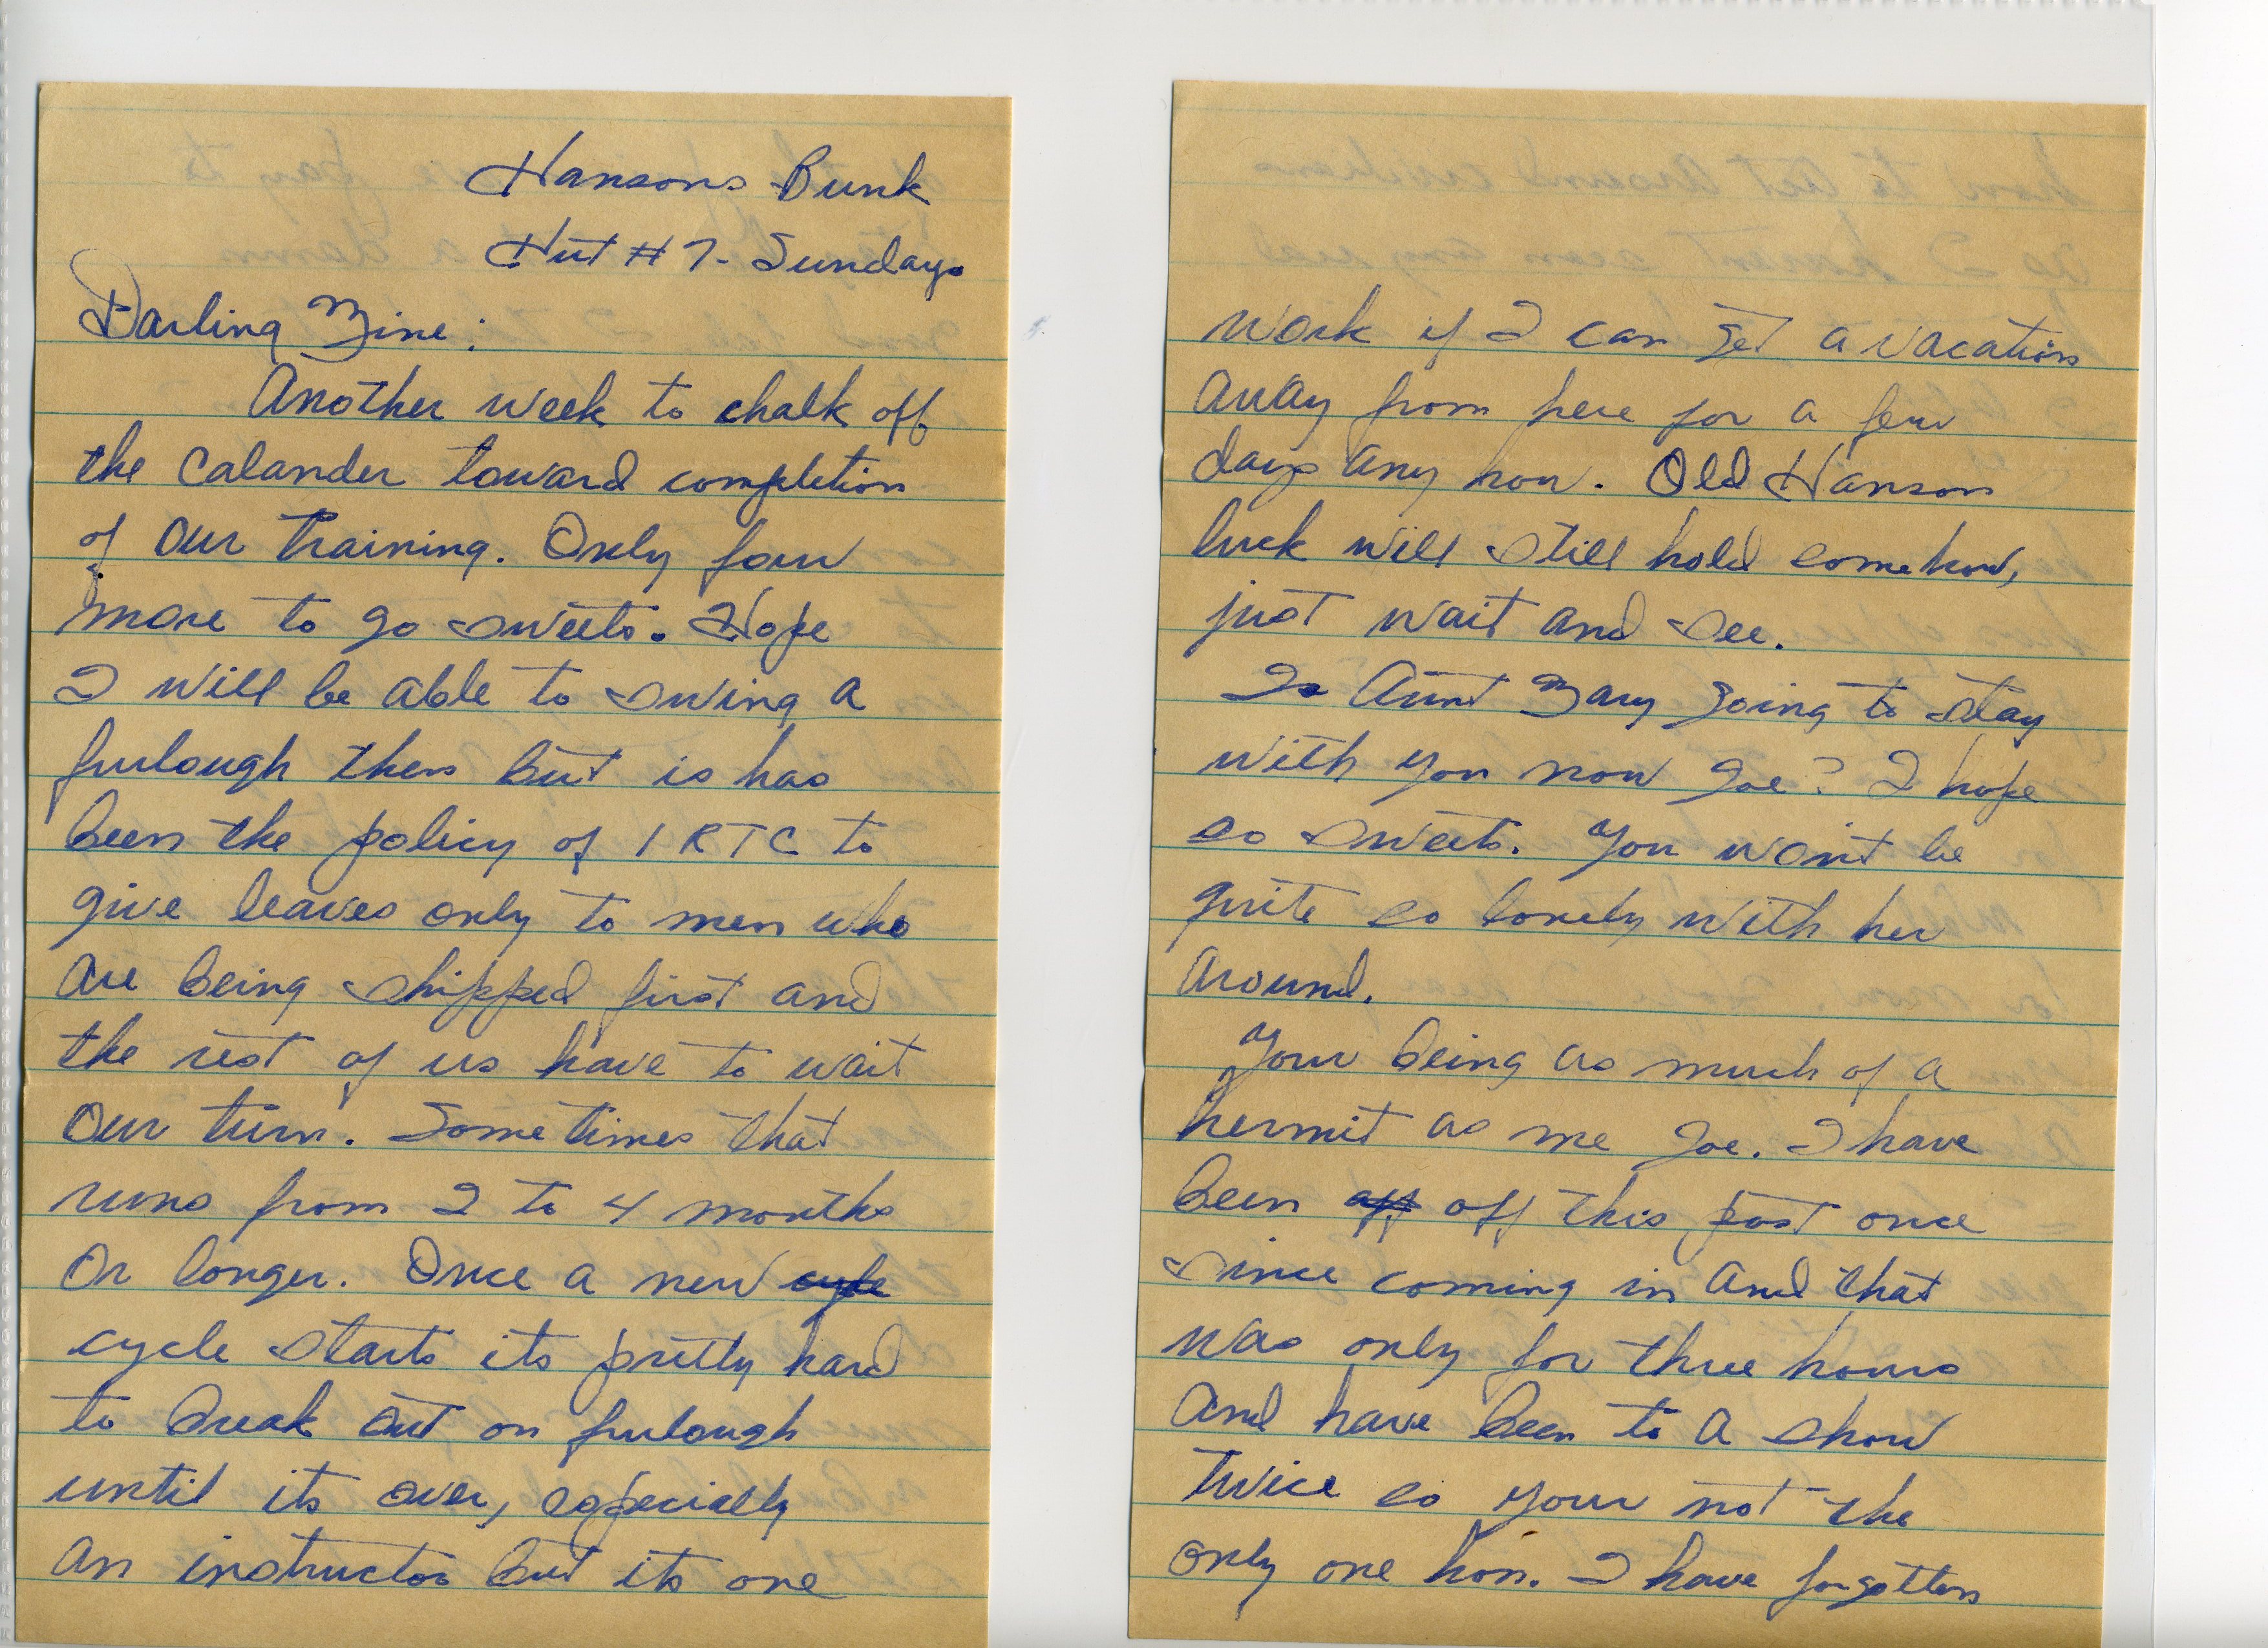 Hansons Bunk
Hut # 7 - Sunday
Darling Mine:
Another week to chalk off
the Calander toward completion
of our training. Only four
more to go sweets. Hope
I will be able to swing a
furlough then but is has
been the policy of IRTC to
give leaves only to men who
are being shipped first and
the rest of us have to wait
our turn. Sometimes that
runs from 2 to 4 months
or longer. Once a new cycle
cycle starts its pretty hard
to break out on furlough
until its over, especially
an instructor but its one
work if I can get a vacation
away from here for a few
days any how. Old Hanson
luck will still hold somehow,
just wait and see.
Is Aunt Mary going to stay
with you now Joe? I hope
so sweets. You won't be
quite so lonely with her
around.
Your being as much of a
hermit as me Joe. I have
been off off this post once
since coming in and that
was only for three hours
and have been to a show
twice so your not the
only one hon. I have forgotten